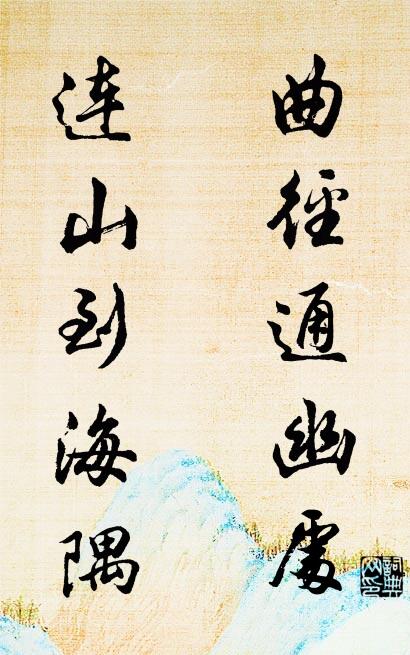 曲徑通幽處
連山到海隅